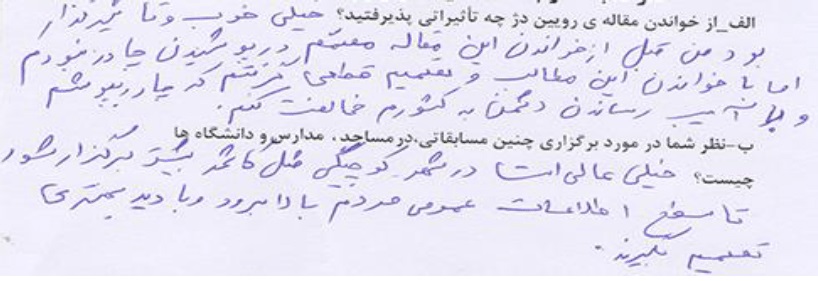 الف_از خواندن مقاله ی رویین دژ چه تأثیراتی پذیرفتید؟ خیلی خوب و تأثیرگذار
بود من قبل از خواندن این مقاله در پوشیدن چادر
اما با خواندن این مطالب و تصمیم قطعی گرفتم که چادر بپوشم
و با آسیب رساندن دشمن به کشورم مخالفت کنم.
ب-نظر شما در مورد برگزاری چنین مسابقاتی،در مساجد، مدارس و دانشگاه ها
چیست؟ خیلی عالی است در شهر کوچکی مثل بیشتر برگزار شود
تا سطح اطلاعات عمومی مردم بالا برود و با دید بهتری
تصمیم بگیرند.